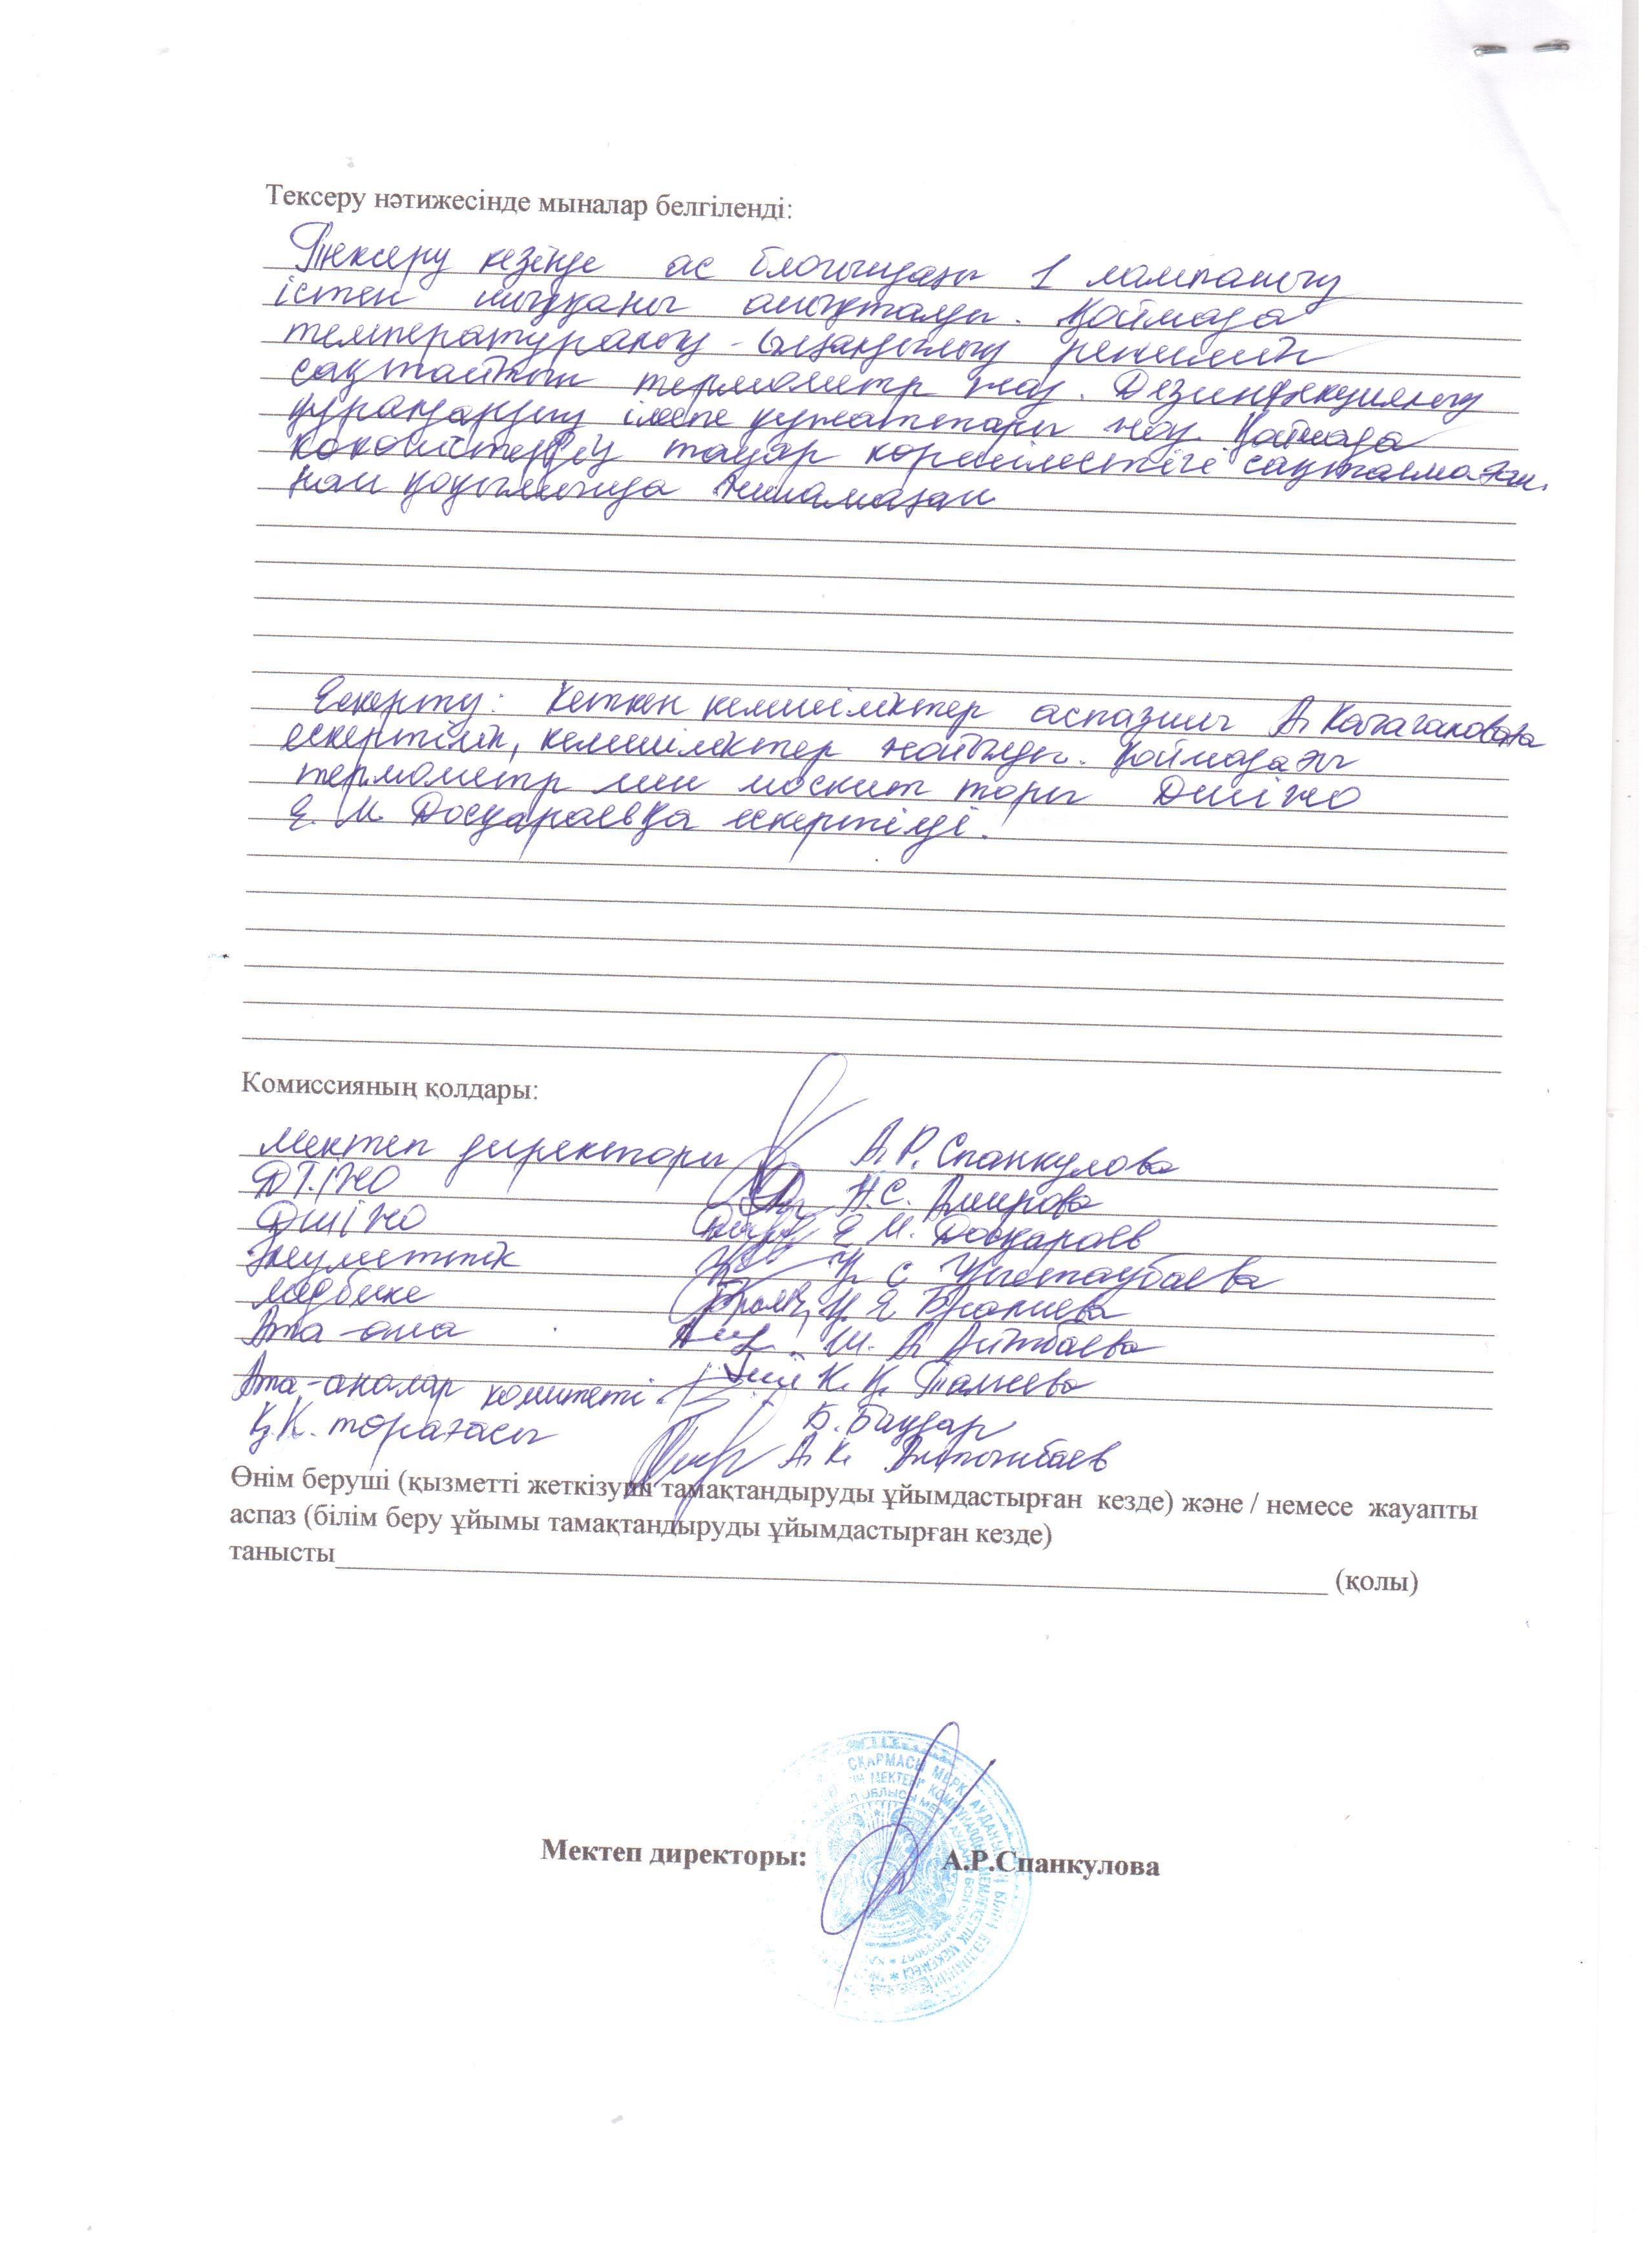 Тексеру нәтижесінде мыналар белгіленді:
Тексеру кезінде ас блогындағы 1 лампаның
істен шыққаны анықталды. Қоймада
температуралық-ылғалдылық режимін
сақтайтын термометр жоқ. Дезинфекциялық
құралдардың ілеспе құжаттары жоқ. Қоймада
көкөністердің тауар көршілестігі сақталмаған.
нан қоқымынша
Ескерту: Кеткен кемшіліктер аспазшы А.
ескертіліп, кемшіліктер жойылды. Қоймадағы
термометр мен москит торы ДШІЖО
Е. М. Досқараевқа ескертілді.
Комиссияның қолдары:
Мектеп директоры А.Р. Спанкулова
ДТІЖО Н.С. Амирова
ДШІЖО Е М. Досқараев
Әлеуметтік С
Медбике
Ата-ана Ш. А Айтбаева
Ата-аналар комитеті. К. Қ.
Қ.К. төрағасы Б. Баудар
А.К.
Өнім беруші (қызметті жеткізуші тамақтандыруды ұйымдастырған кезде) және / немесе жауапты
аспаз (білім беру ұйымы тамақтандыруды ұйымдастырған кезде)
танысты (қолы)
Мектеп директоры: А.Р.Спанкулова